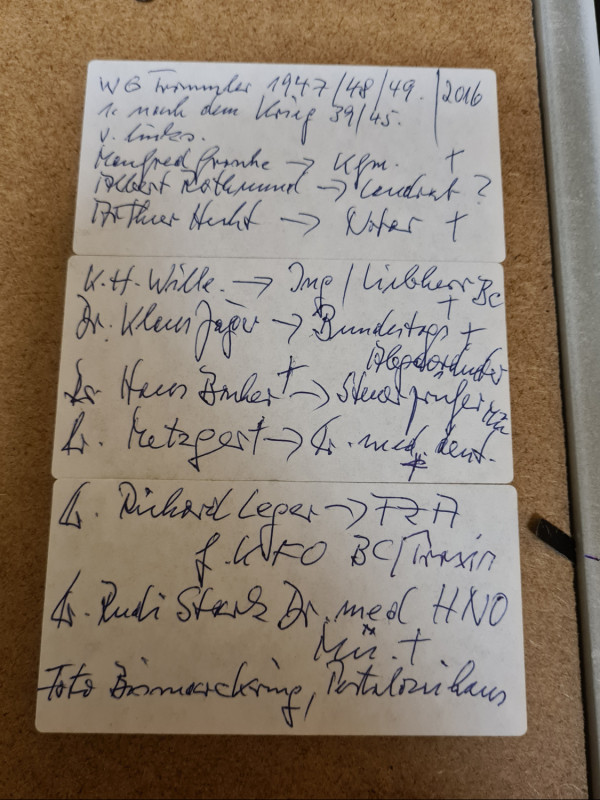 WG Trimmler 1947/48/49. | 2016
1. nach dem Krieg 39/45.
v. links.
Manfred → Kfm. +
Albert Rothmund → Landrat ?
Arthur Hecht → Notar +
K.H. Wille. → Ing / Liebherr BC
+
Dr. Klaus Jäger → Bundestags +
Abgeordneter
Dr. Hans + → Steuerprüfer
Dr. Metzger + → Dr. med. dent.
Dr. Richard Leger → FZA
f. KFO BC/Praxis
Dr. Rudi Stark Dr. med HNO
Mü. +
Foto Bismarckring, Pestalozzihaus